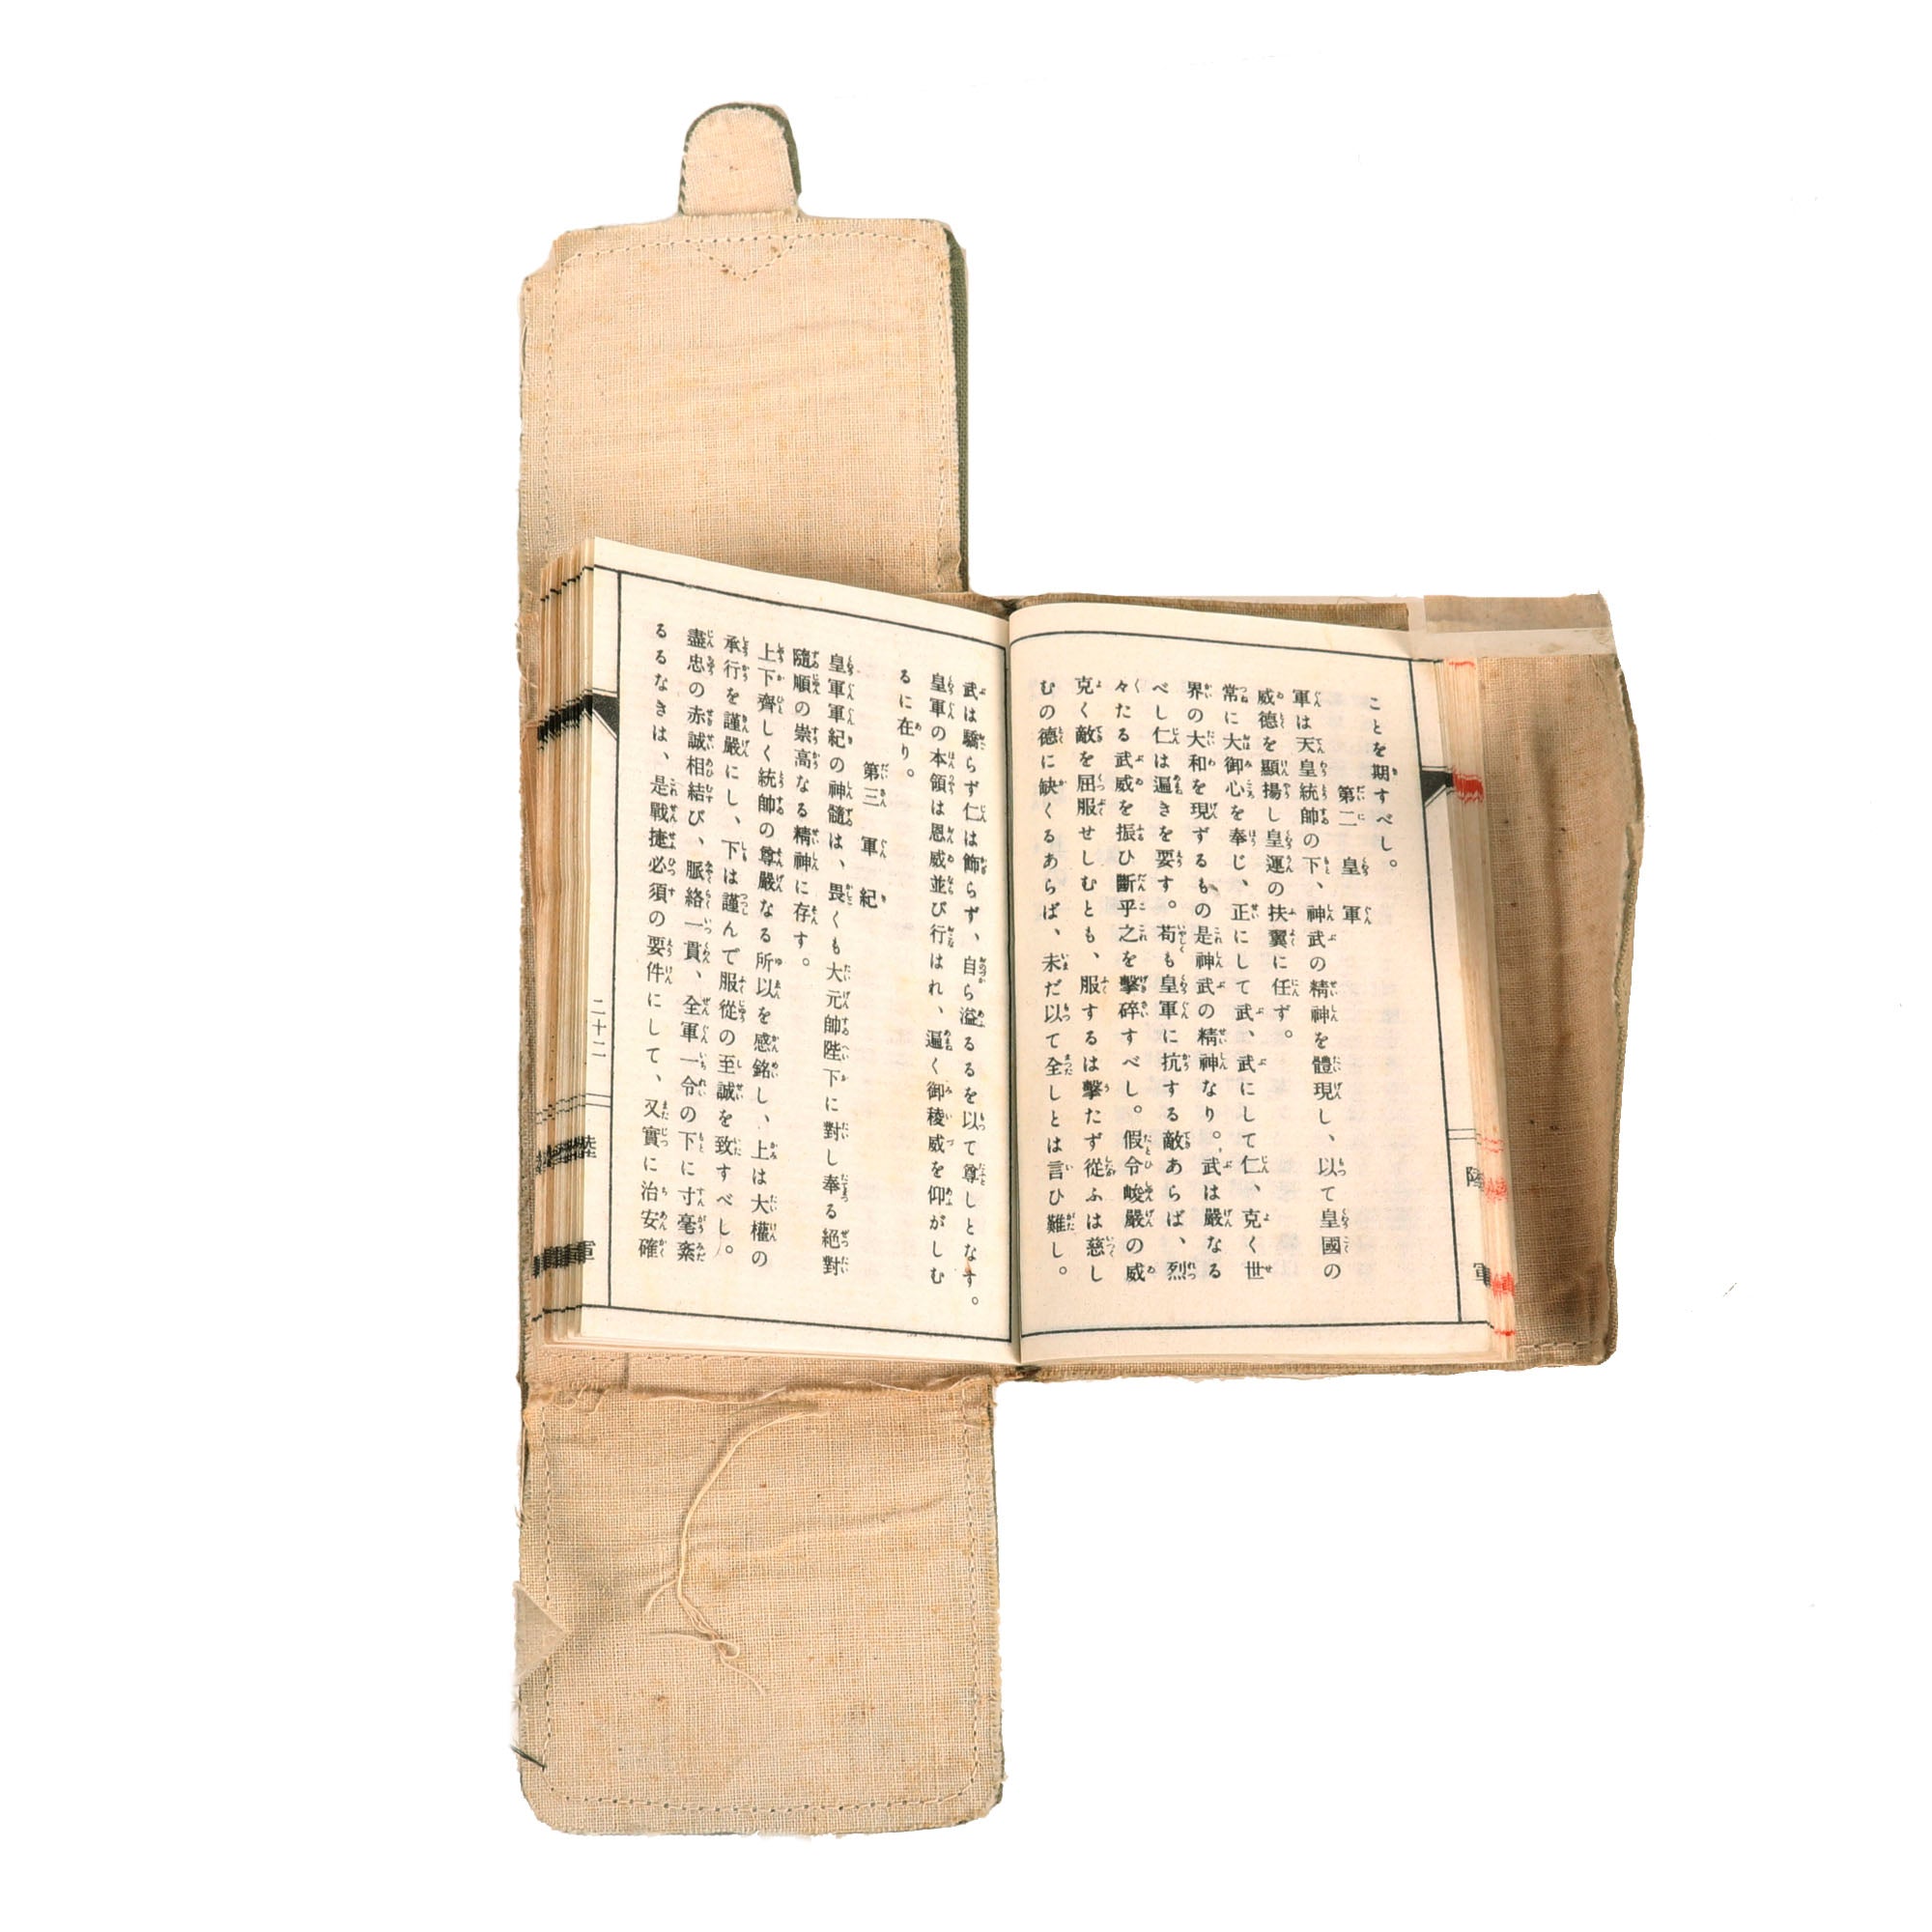 ことを期すべし。
第二 皇軍
軍は天皇統帥の下、神武の精神を體現し、以て皇國の
威德を顯揚し皇運の扶翼に任ず。
常に大御心を奉じ、正にして武、武にして仁、克く世
界の大和を現ずるもの是神武の精神なり。武は嚴なる
べし仁は遍きを要す。苟も皇軍に抗する敵あらば、烈
々たる武威を振ひ斷乎之を擊碎すべし。假令峻嚴の威
克く敵を屈服せしむとも、服するは擊たず從ふは慈し
むの德に缺くるあらば、未だ以て全しとは言ひ難し。
陸軍
武は驕らず仁は飾らず、自ら溢るるを以て尊しとなす。
皇軍の本領は恩威並び行はれ、遍く御稜威を仰がしむ
るに在り。
第三 軍紀
皇軍軍紀の神髓は、畏くも大元帥陛下に對し奉る絕對
隨順の崇高なる精神に存す。
上下齊しく統帥の尊嚴なる所以を感銘し、上は大權の
承行を謹嚴にし、下は謹んで服從の至誠を致すべし。
盡忠の赤誠相結び、脈絡一貫、全軍一令の下に寸毫紊
るるなきは、是戰捷必須の要件にして、又實に治安確
二十二
陸軍